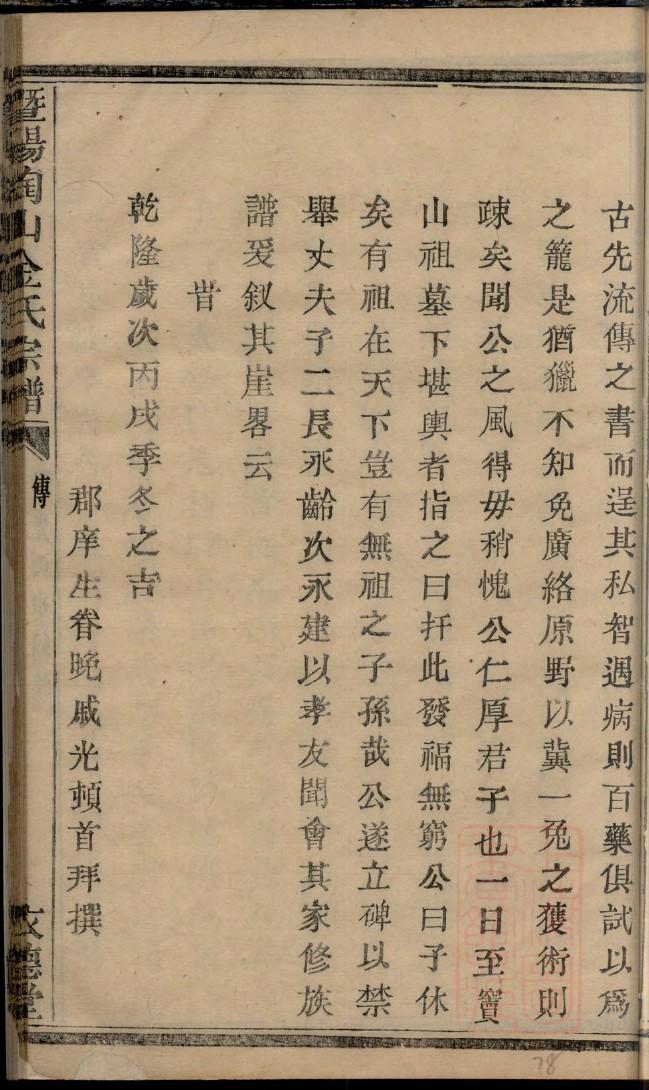 古先流傳之書而逞其私智遇病則百藥俱試以爲
之籠是猶獵不知兔廣絡原野以冀一兔之獲術則
疎矣聞公之風得毋稍愧公仁厚君子也一日至竇
山祖墓下堪輿者指之曰扦此發福無窮公曰子休
矣有祖在天下豈有無祖之子孫哉公遂立碑以禁
舉丈夫子二長永齡次永建以孝友聞會其家修族
譜爰叙其崖畧云
旹
乾隆歲次丙戌季冬之吉
郡庠生眷晚戚光頓首拜撰
暨陽陶山金氏宗譜
傳
文德堂
78